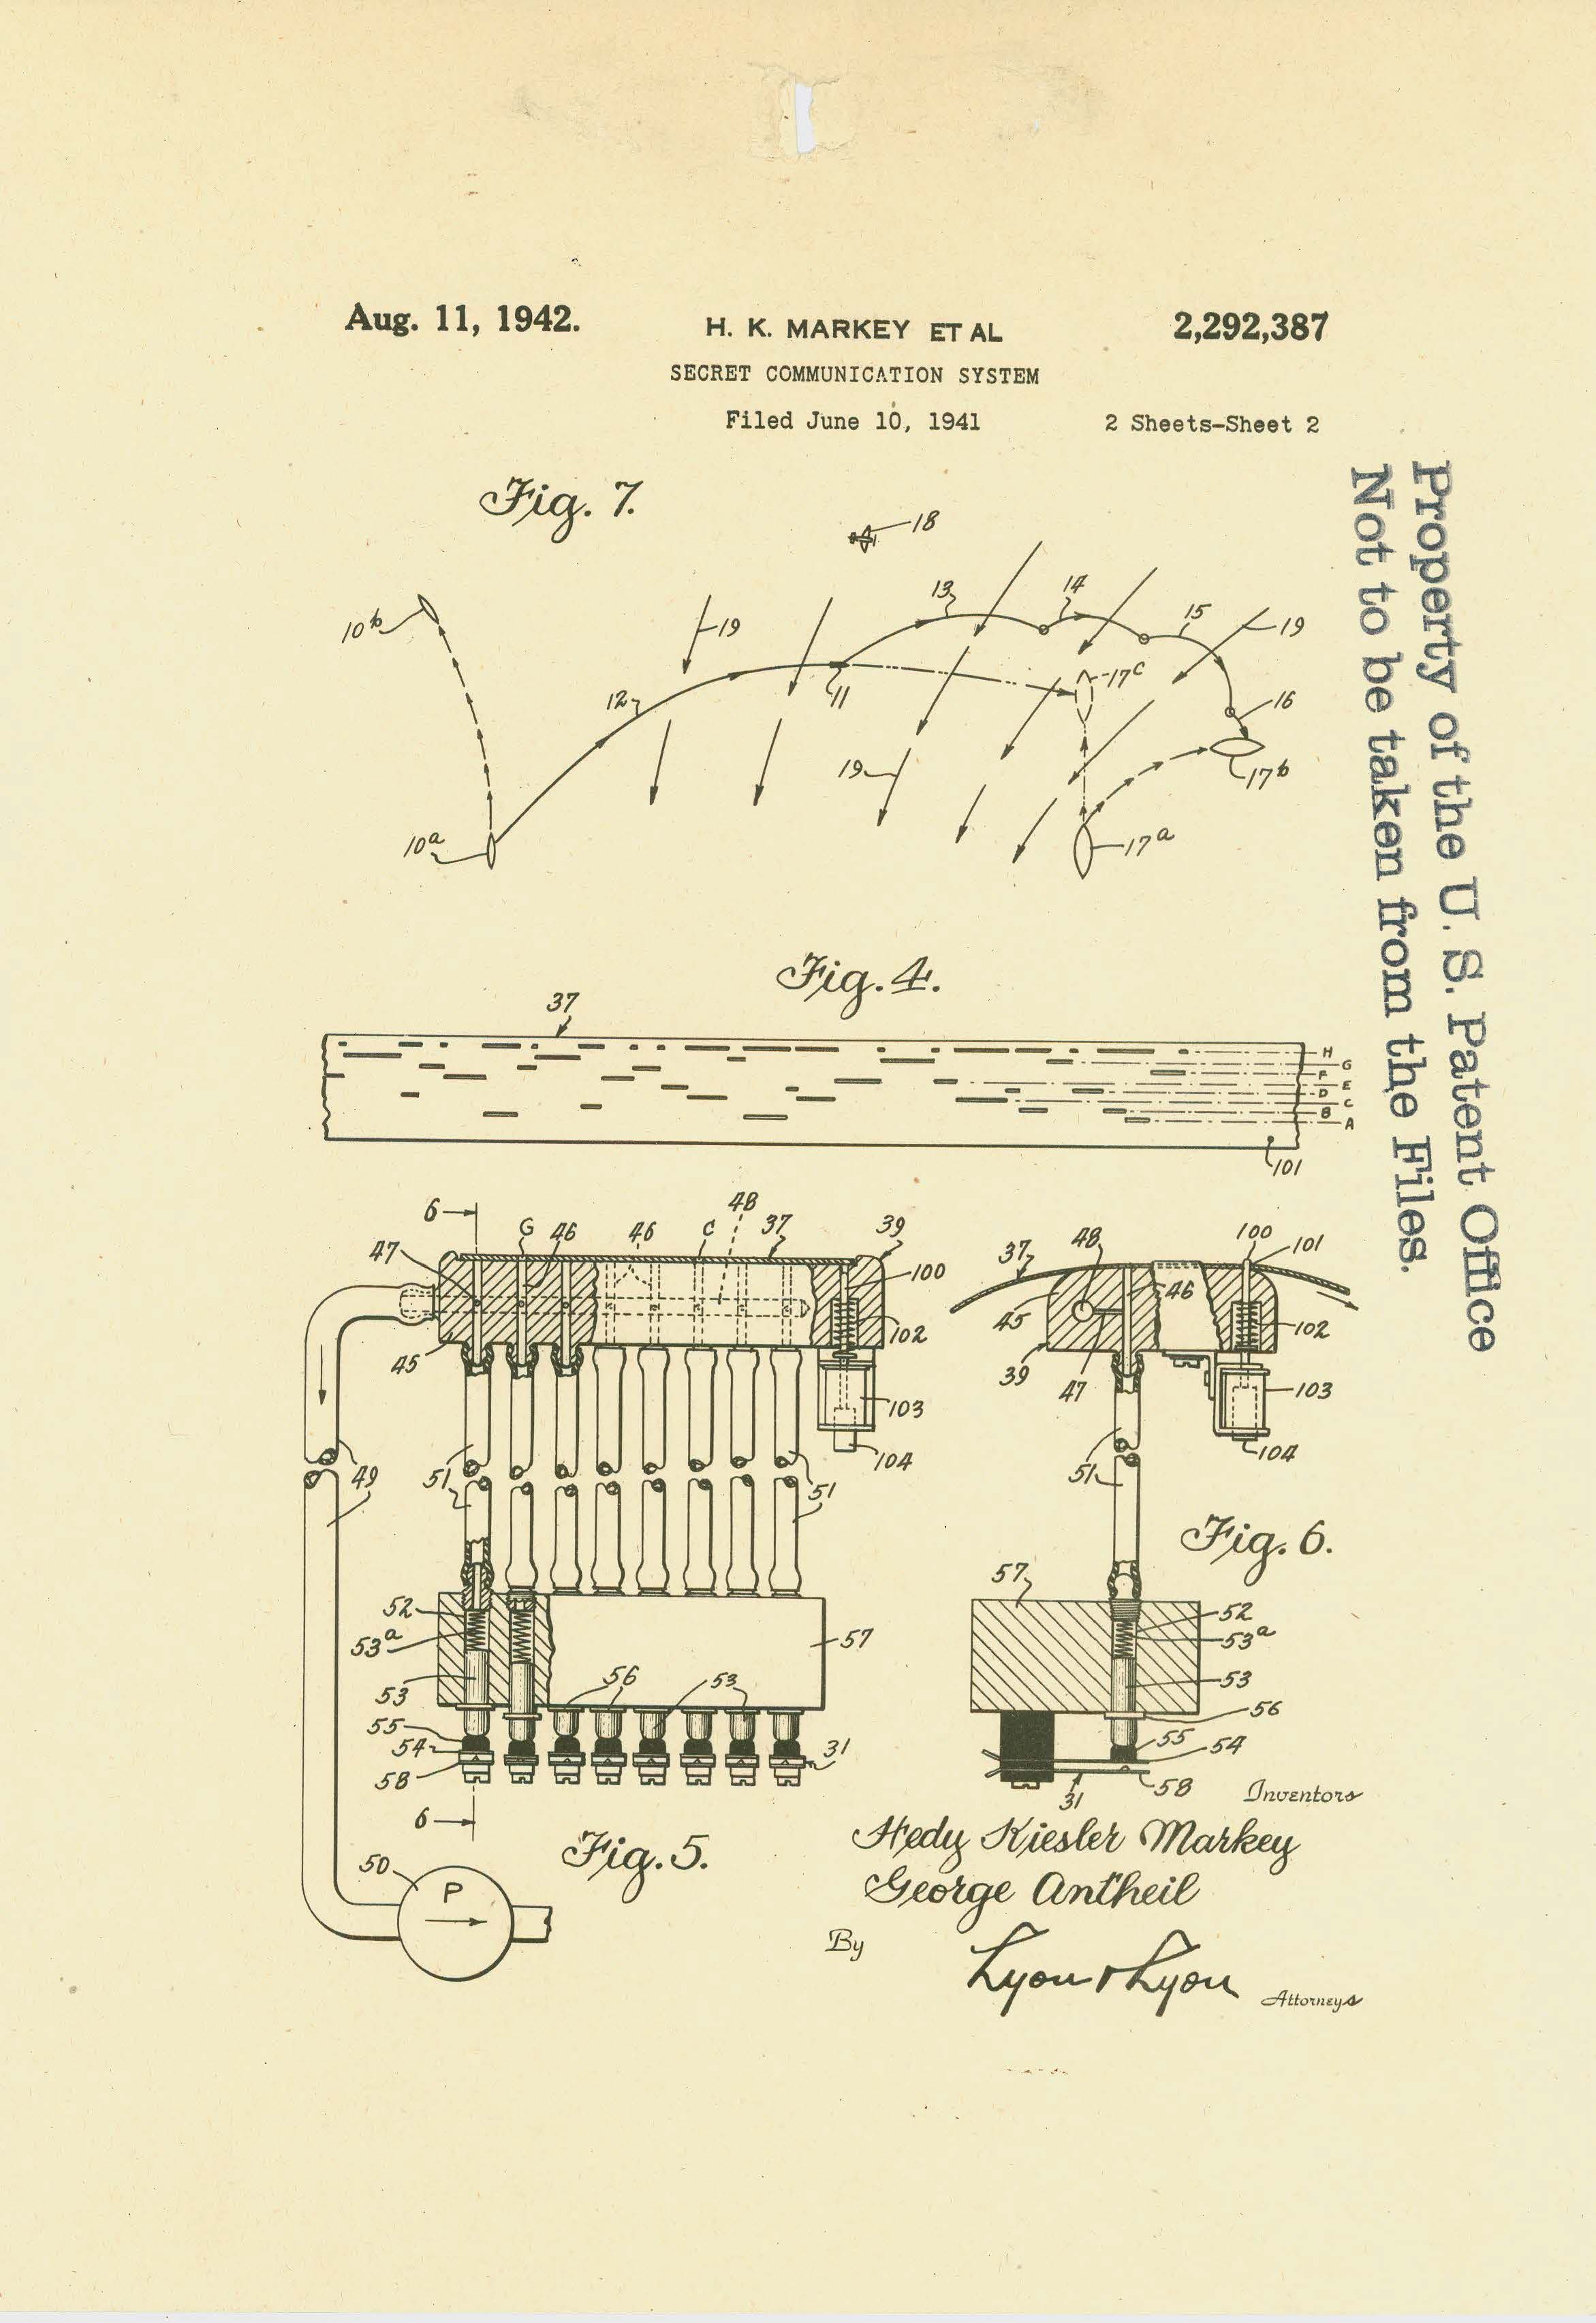 Aug. 11, 1942.
H. K. MARKEY ET AL
2,292,387
SECRET COMMUNICATION SYSTEM
Filed June 10, 1941
2 Sheets-Sheet 2
Property of the U. S. Patent Office
Not to be taken from the Files.
Fig. 7.
18
13
14
15
10b
19
19
12
11
17c
16
19
17b
10a
17a
Fig. 4.
37
H
G
F
E
D
C
B
A
101
6
G
46
46
C
48
37
39
47
100
102
45
103
104
49
51
51
52
53a
57
53
56
53
55
54
58
31
6
50
P
Fig. 5.
37
48
100
101
46
45
102
39
47
103
104
51
Fig. 6.
57
52
53a
53
56
55
54
58
31
Inventors
Hedy Kiesler Markey
George Antheil
By
Lyon & Lyon
Attorneys